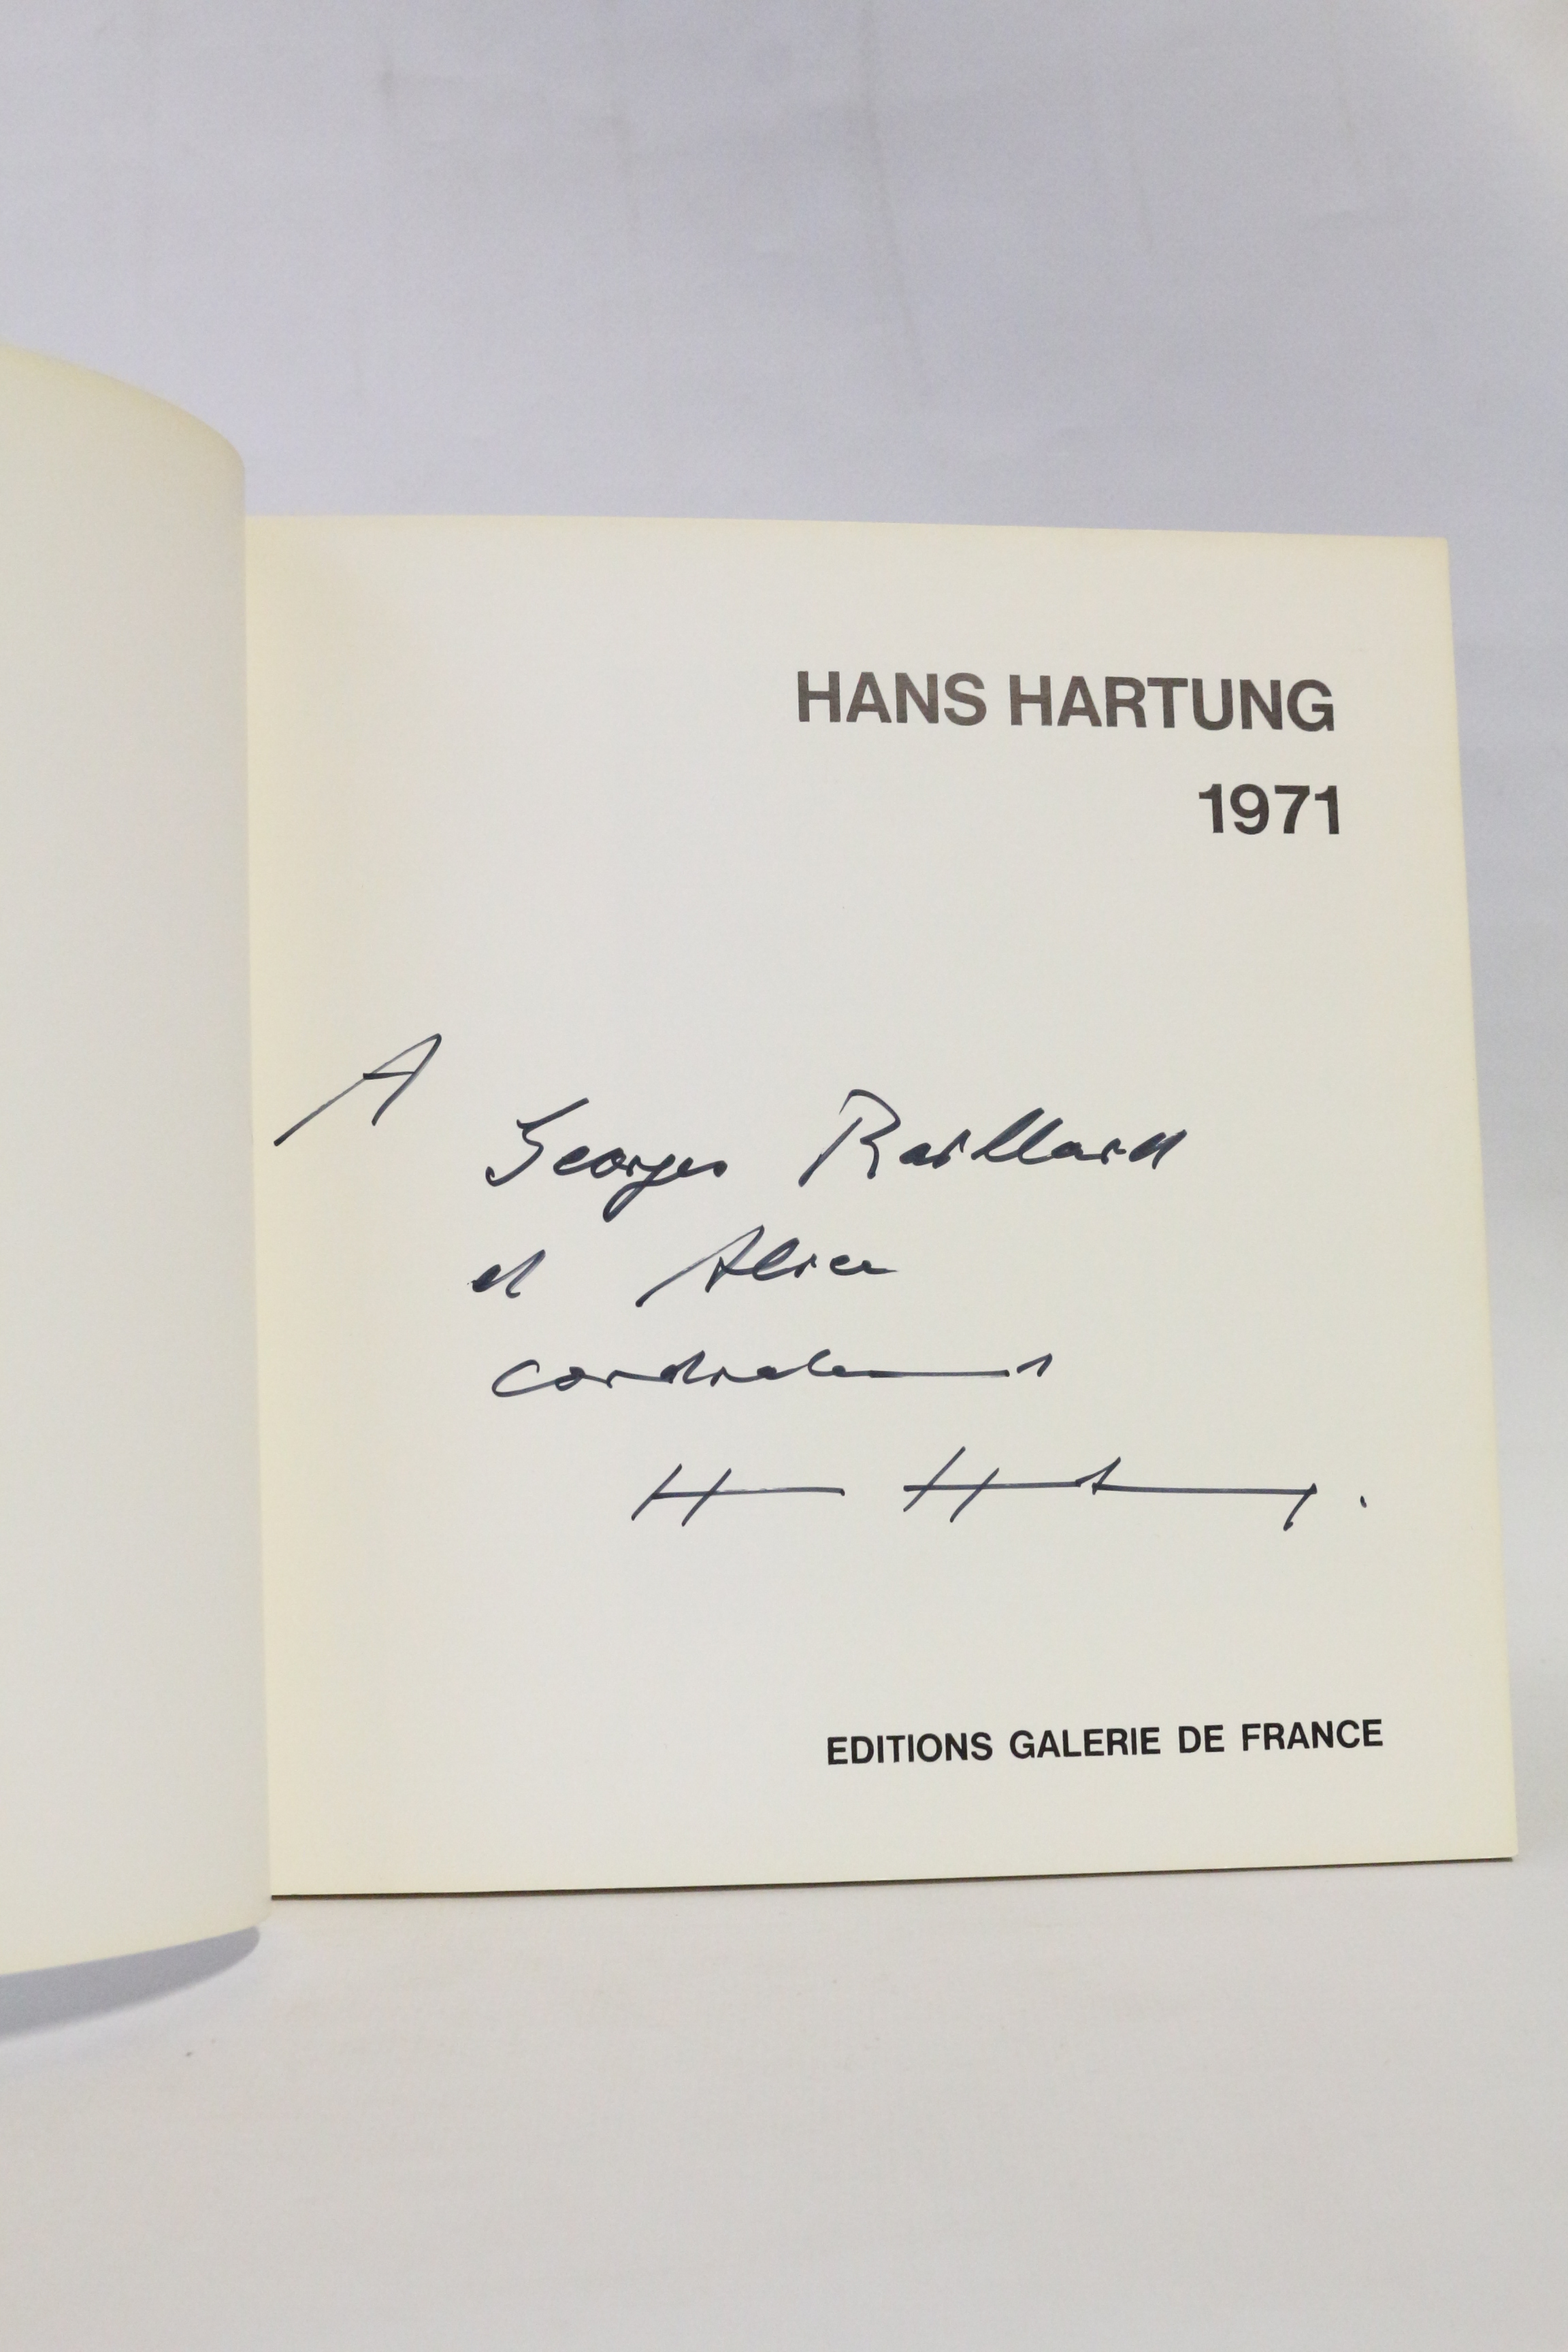 HANS HARTUNG
1971
A
Georges Raillard
et Alice
cordialement
Hans Hartung.
EDITIONS GALERIE DE FRANCE